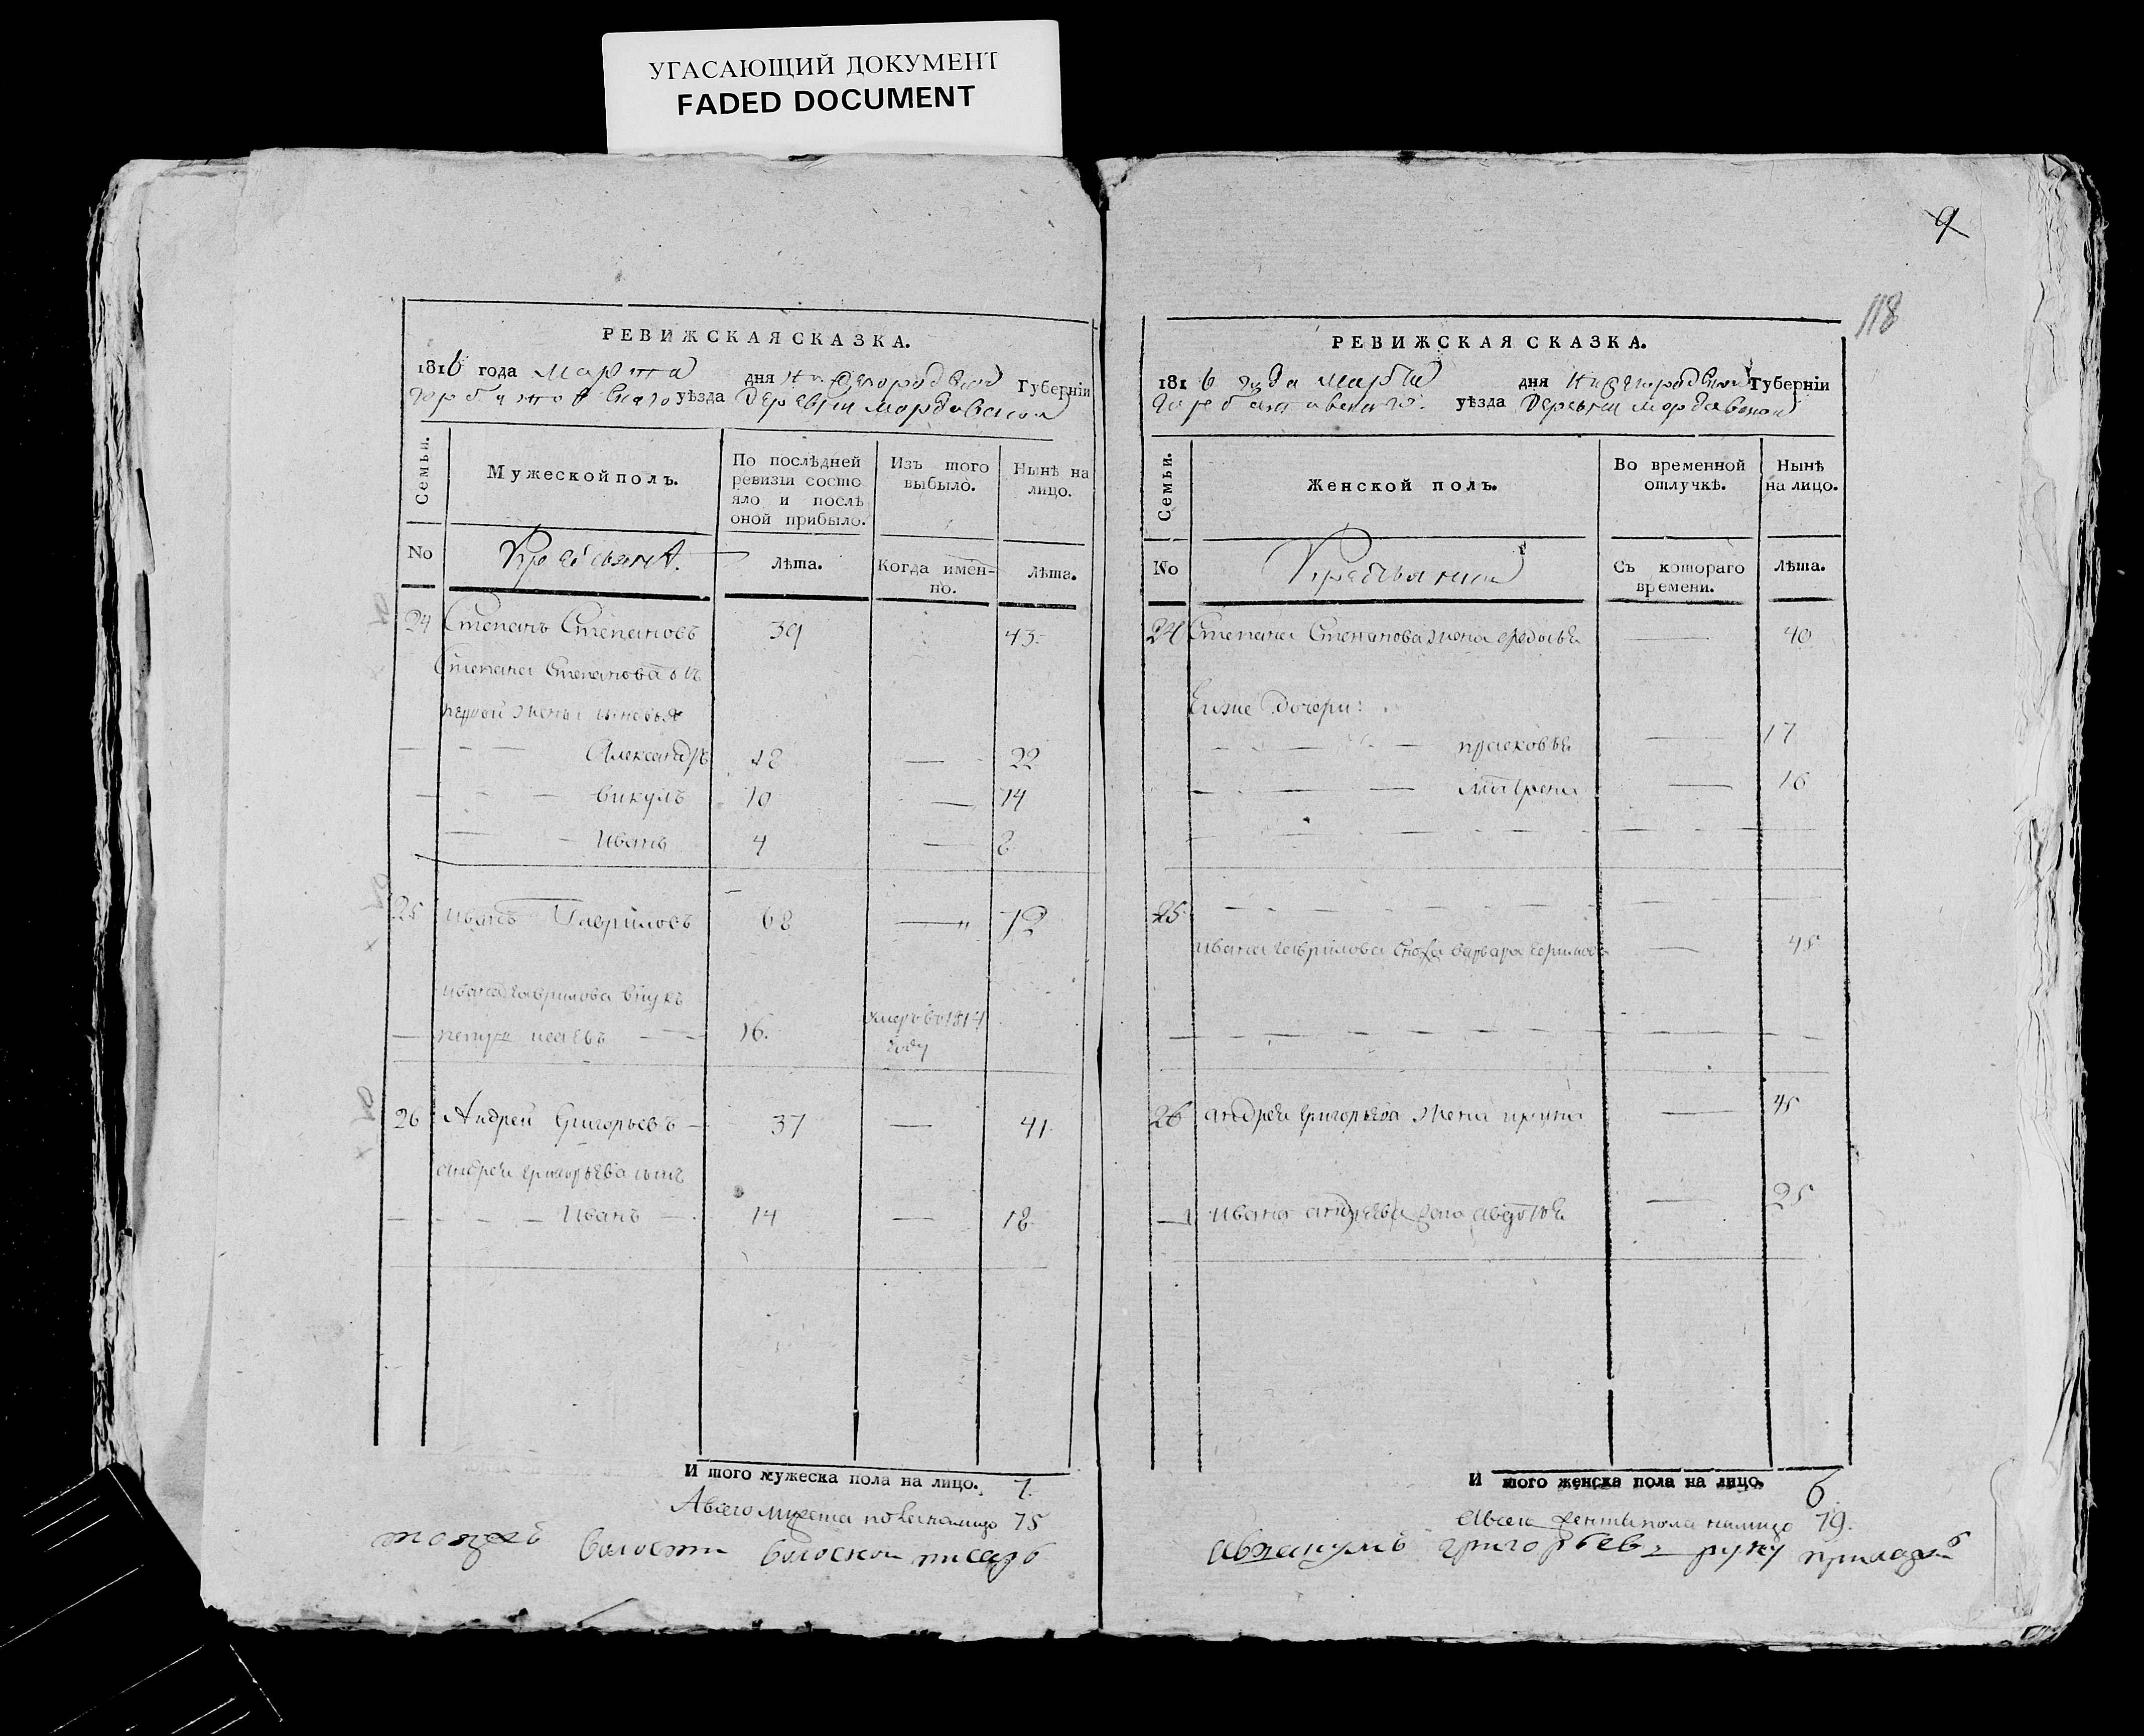 УГАСАЮЩИЙ ДОКУМЕНТ
FADED DOCUMENT
РЕВИЖСКАЯ СКАЗКА.
1816 года марта дня Нижегородской Губернїи
Горбатовскаго уѣзда Деревни Мордовской
Семьи.
Мужеской полъ.
По послѣдней
ревизїи состо
яло и послѣ
оной прибыло.
Изъ того
выбыло.
Нынѣ на
лицо.
No
Крестьянѣ.
лѣта.
Когда имен-
но.
лѣта.
24 Степанъ Степановъ 39 43
Степана Степанова отъ
первой жены сыновья
Александръ 18 — 22
викулъ 10 — 14
Иванъ 4 — 8
25 Иванъ Гавриловъ 68 — 72
ивана гаврилова внукъ
петръ исаевъ — 16. умеръ во 1814
году
26 Андрей Григорьевъ — 37 — 41
андрея григорьева сынъ
Иванъ — 14 — 18
И того мужеска пола на лицо. 7.
А всего мужеска пола на лицо 75
волости волоской писарь
9
118
РЕВИЖСКАЯ СКАЗКА.
1816 года марта дня Нижегородской Губернїи
Горбатовскаго уѣзда Деревни Мордовской
Семьи.
Женской полъ.
Во временной
отлучкѣ.
Нынѣ
на лицо.
No
Крестьянки
Съ котораго
времени.
лѣта.
24 Степана Степанова жона федосья — 40
Ихже дочери:
прасковья — 17
матрена — 16
25
ивана гаврилова сноха варвара — 45
26 андрея григорьева жена ирина — 45
ивана андреева жена авдотья — 25
И того женска пола на лицо. 6.
А всего женска пола на лицо 79.
авакумъ григорьевъ руку приложилъ